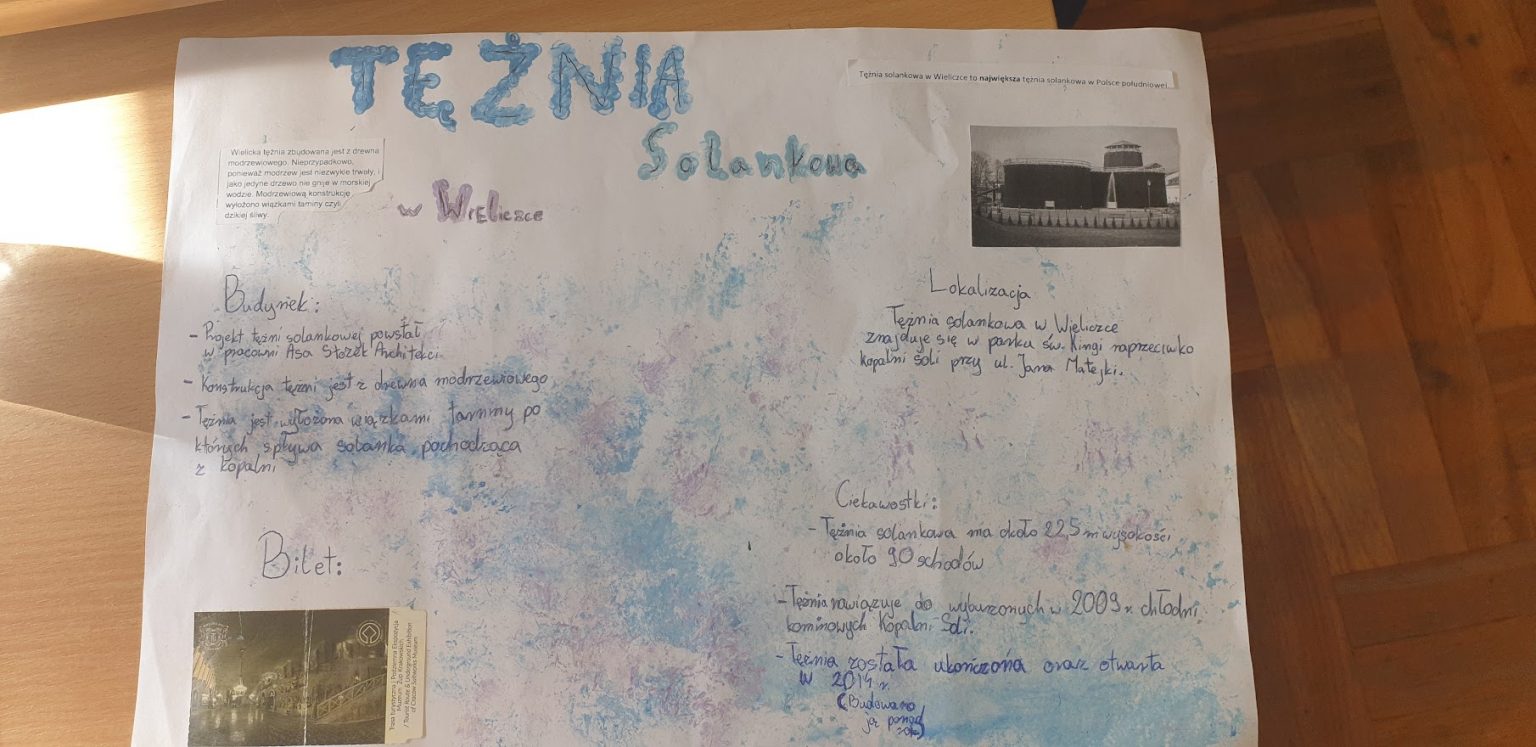 TĘŻNIA
Solankowa
w Wieliczce
Tężnia solankowa w Wieliczce to największa tężnia solankowa w Polsce południowej.
Wielicka tężnia zbudowana jest z drewna
modrzewiowego. Nieprzypadkowo,
ponieważ modrzew jest niezwykle trwały, i
jako jedyne drzewo nie gnije w morskiej
wodzie. Modrzewiową konstrukcję
wyłożono wiązkami tarniny czyli
dzikiej śliwy.
Budynek:
- Projekt tężni solankowej powstał
w pracowni Asa Stozek Architekci
- Konstrukcja tężni jest z drewna modrzewiowego
- Tężnia jest wyłożona wiązkami tarniny po
których spływa solanka pochodząca
z kopalni
Bilet:
Trasa Turystyczna i Podziemna Ekspozycja
Muzeum Żup Krakowskich
/ Tourist Route & Underground Exhibition
of Cracow Saltworks Museum
Lokalizacja
Tężnia solankowa w Wieliczce
znajduje się w parku św. Kingi naprzeciwko
kopalni soli przy ul. Jana Matejki.
Ciekawostki:
- Tężnia solankowa ma około 22,5 m wysokości
około 90 schodów
- Tężnia nawiązuje do wyburzonych w 2009 r. chłodni
kominowych Kopalni Soli.
- Tężnia została ukończona oraz otwarta
w 2014 r.
(Budowano
ją ponad
rok)